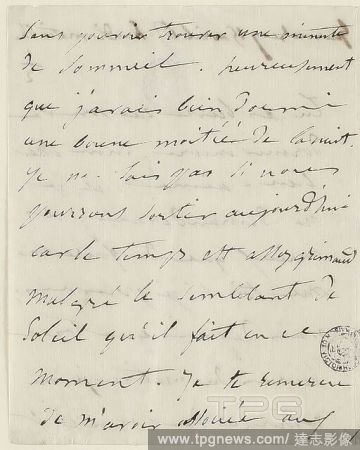 sans pouvoir trouver une minute
de sommeil. heureusement
que j'avais bien dormi
une bonne moitié de la nuit.
Je ne sais pas si nous
pourrons sortir aujourd'hui
car le temps est assez grimaud
malgré le semblant de
Soleil qu'il fait en ce
moment. Je te remercie
de m'avoir associée au
TPG
www.tpgnews.com / 達志影像